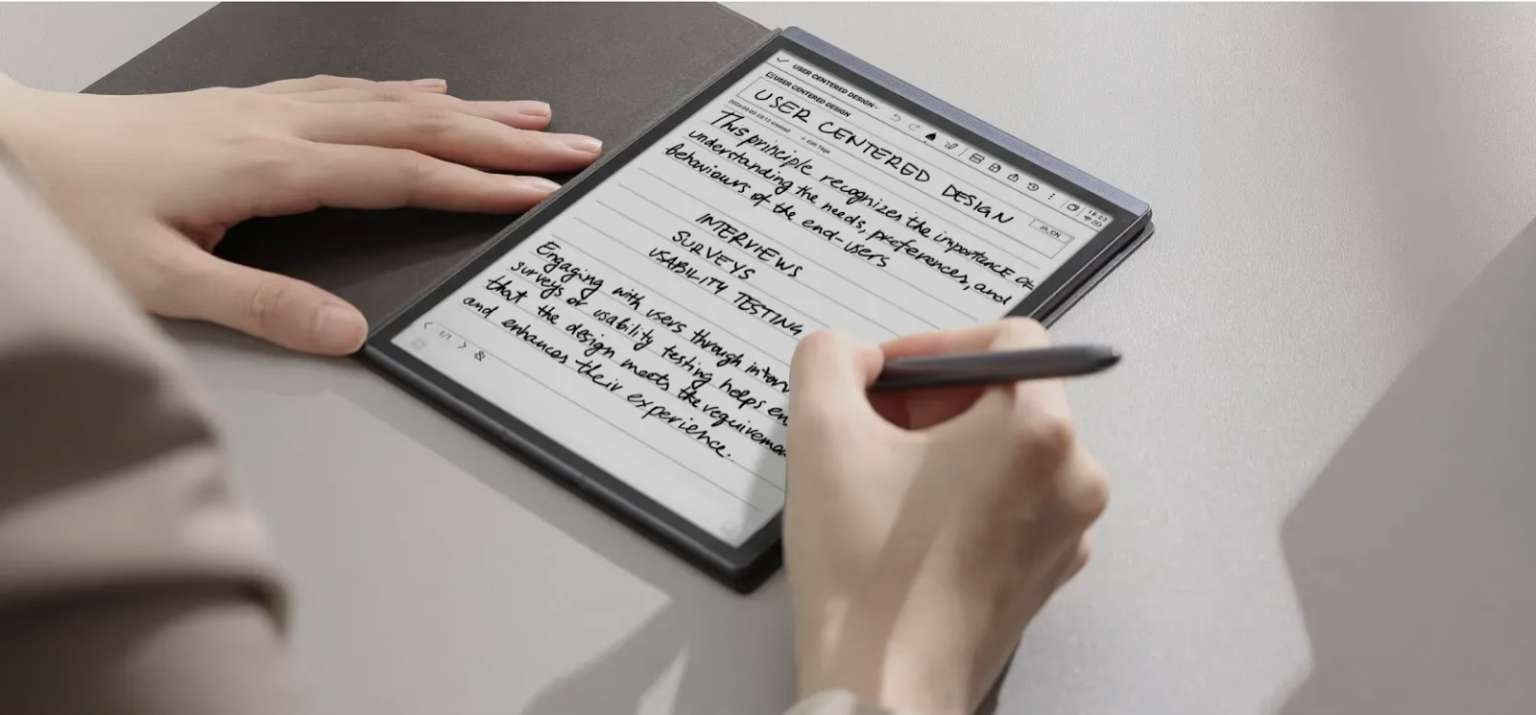 USER CENTERED DESIGN
USER CENTERED DESIGN
USER CENTERED DESIGN
This principle recognizes the importance
understanding the needs, preferences, and
behaviours of the end-users
INTERVIEWS
SURVEYS
USABILITY TESTING
Engaging with users through
surveys or usability testing helps
that the design meets the
and enhances their experience.
1/1